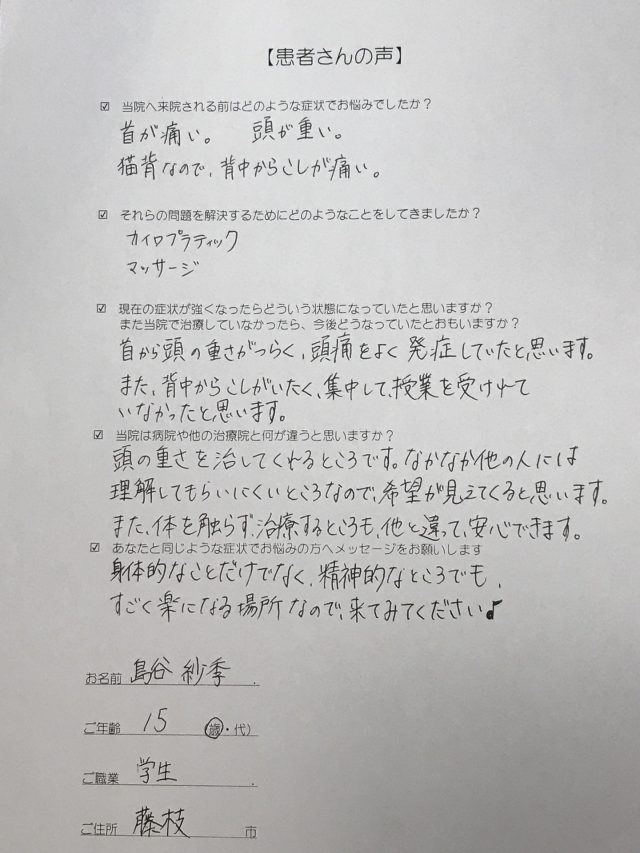 【患者さんの声】
☑ 当院へ来院される前はどのような症状でお悩みでしたか？
首が痛い。　頭が重い。
猫背なので、背中からこしが痛い。
☑ それらの問題を解決するためにどのようなことをしてきましたか？
カイロプラティック
マッサージ
☑ 現在の症状が強くなったらどういう状態になっていたと思いますか？
また当院で治療していなかったら、今後どうなっていたとおもいますか？
首から頭の重さがつらく、頭痛をよく発症していたと思います。
また、背中からこしがいたく、集中して、授業を受けれて
いなかったと思います。
☑ 当院は病院や他の治療院と何が違うと思いますか？
頭の重さを治してくれるところです。なかなか他の人には
理解してもらいにくいところなので、希望が見えてくると思います。
また、体を触らず、治療するところも、他と違って、安心できます。
☑ あなたと同じような症状でお悩みの方へメッセージをお願いします
身体的なことだけでなく、精神的なところでも、
すごく楽になる場所なので、来てみてください♪
お名前 島谷 紗季 .
ご年齢 15 （歳・代）
ご職業 学生 .
ご住所 藤枝 市